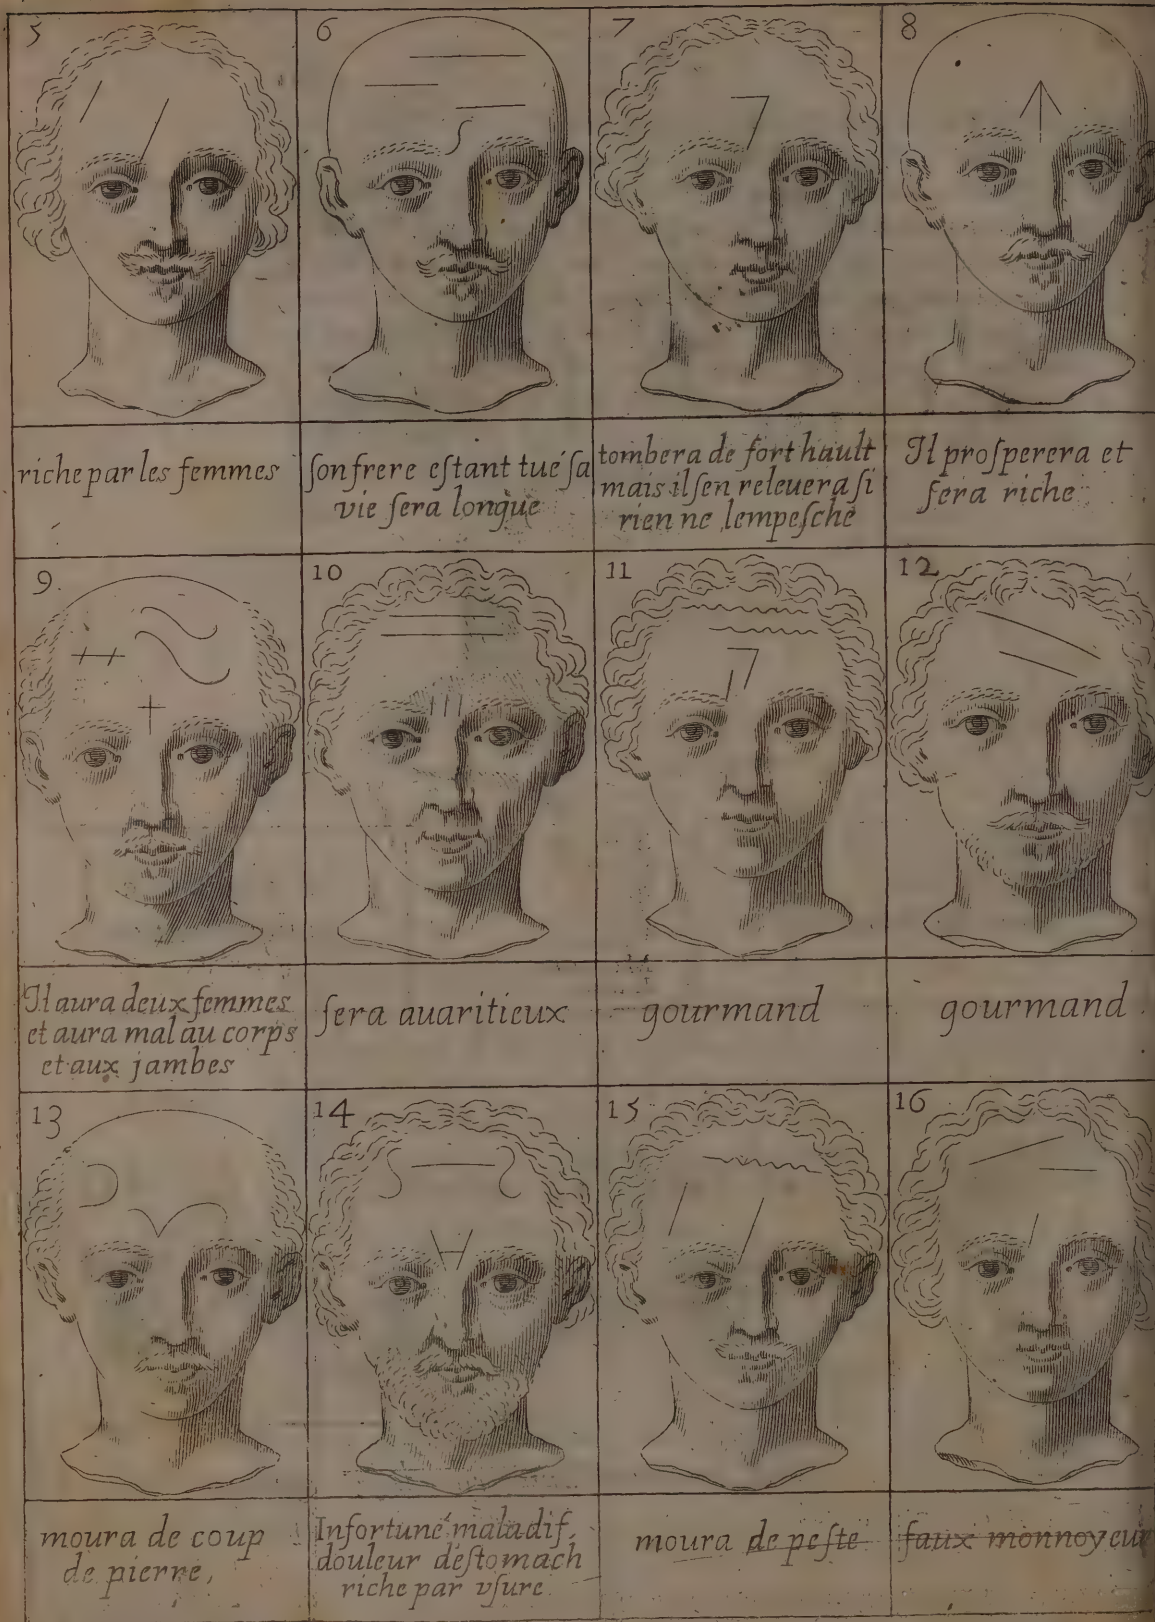 5
6
7
8
riche par les femmes
ſon frere eſtant tué ſa
vie ſera longue
tombera de fort hault
mais il ſen releuera ſi
rien ne lempeſche
Il proſperera et
ſera riche
9.
10
11
12
Il aura deux femmes
et aura mal au corps
et aux jambes
ſera auaritieux
gourmand
gourmand
13
14
15
16
moura de coup
de pierre,
Infortuné maladif,
douleur deſtomach
riche par vſure
moura de peſte
faux monnoyeur